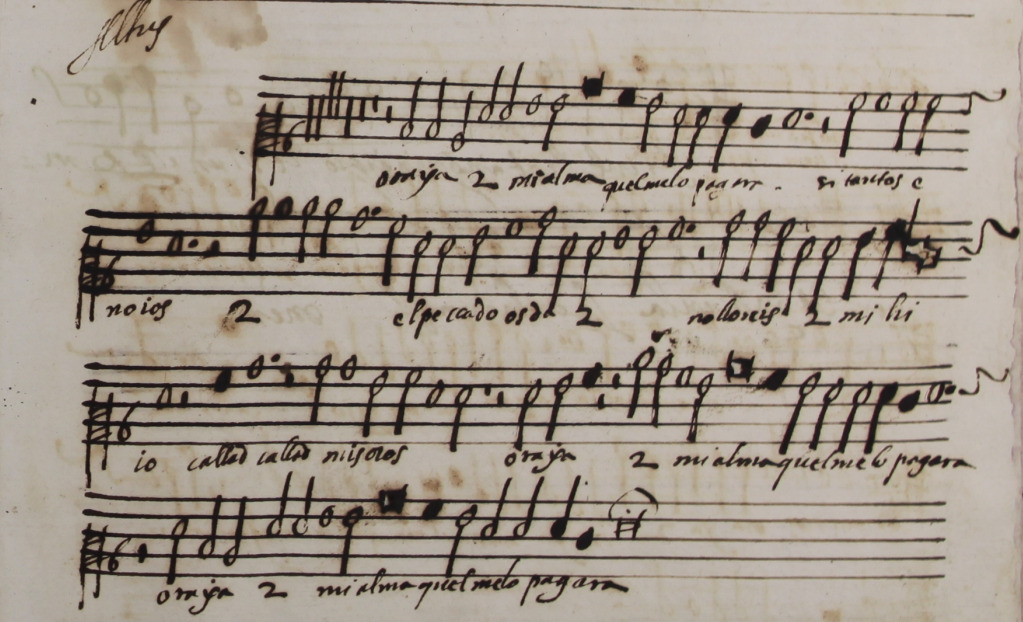 oraya 2 mi alma quelmelo pagara. si tantos e
noios 2 elpecado osda 2 nolloreis 2 mi hi
io callad callad misoios oraya 2 mi alma quelmelo pagara
oraya 2 mi alma quelmelo pagara